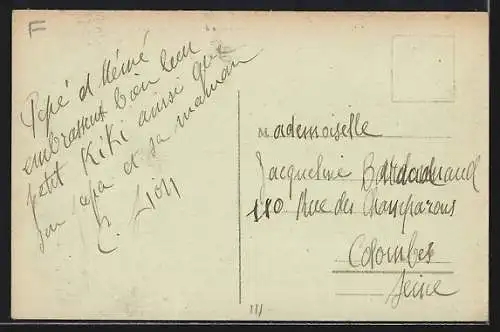 F
Pépé et Mémé
embrassent bien leur
petit Kiki ainsi que
son papa et sa maman
Mademoiselle
Jacqueline
110 Rue des
Colombes
Seine